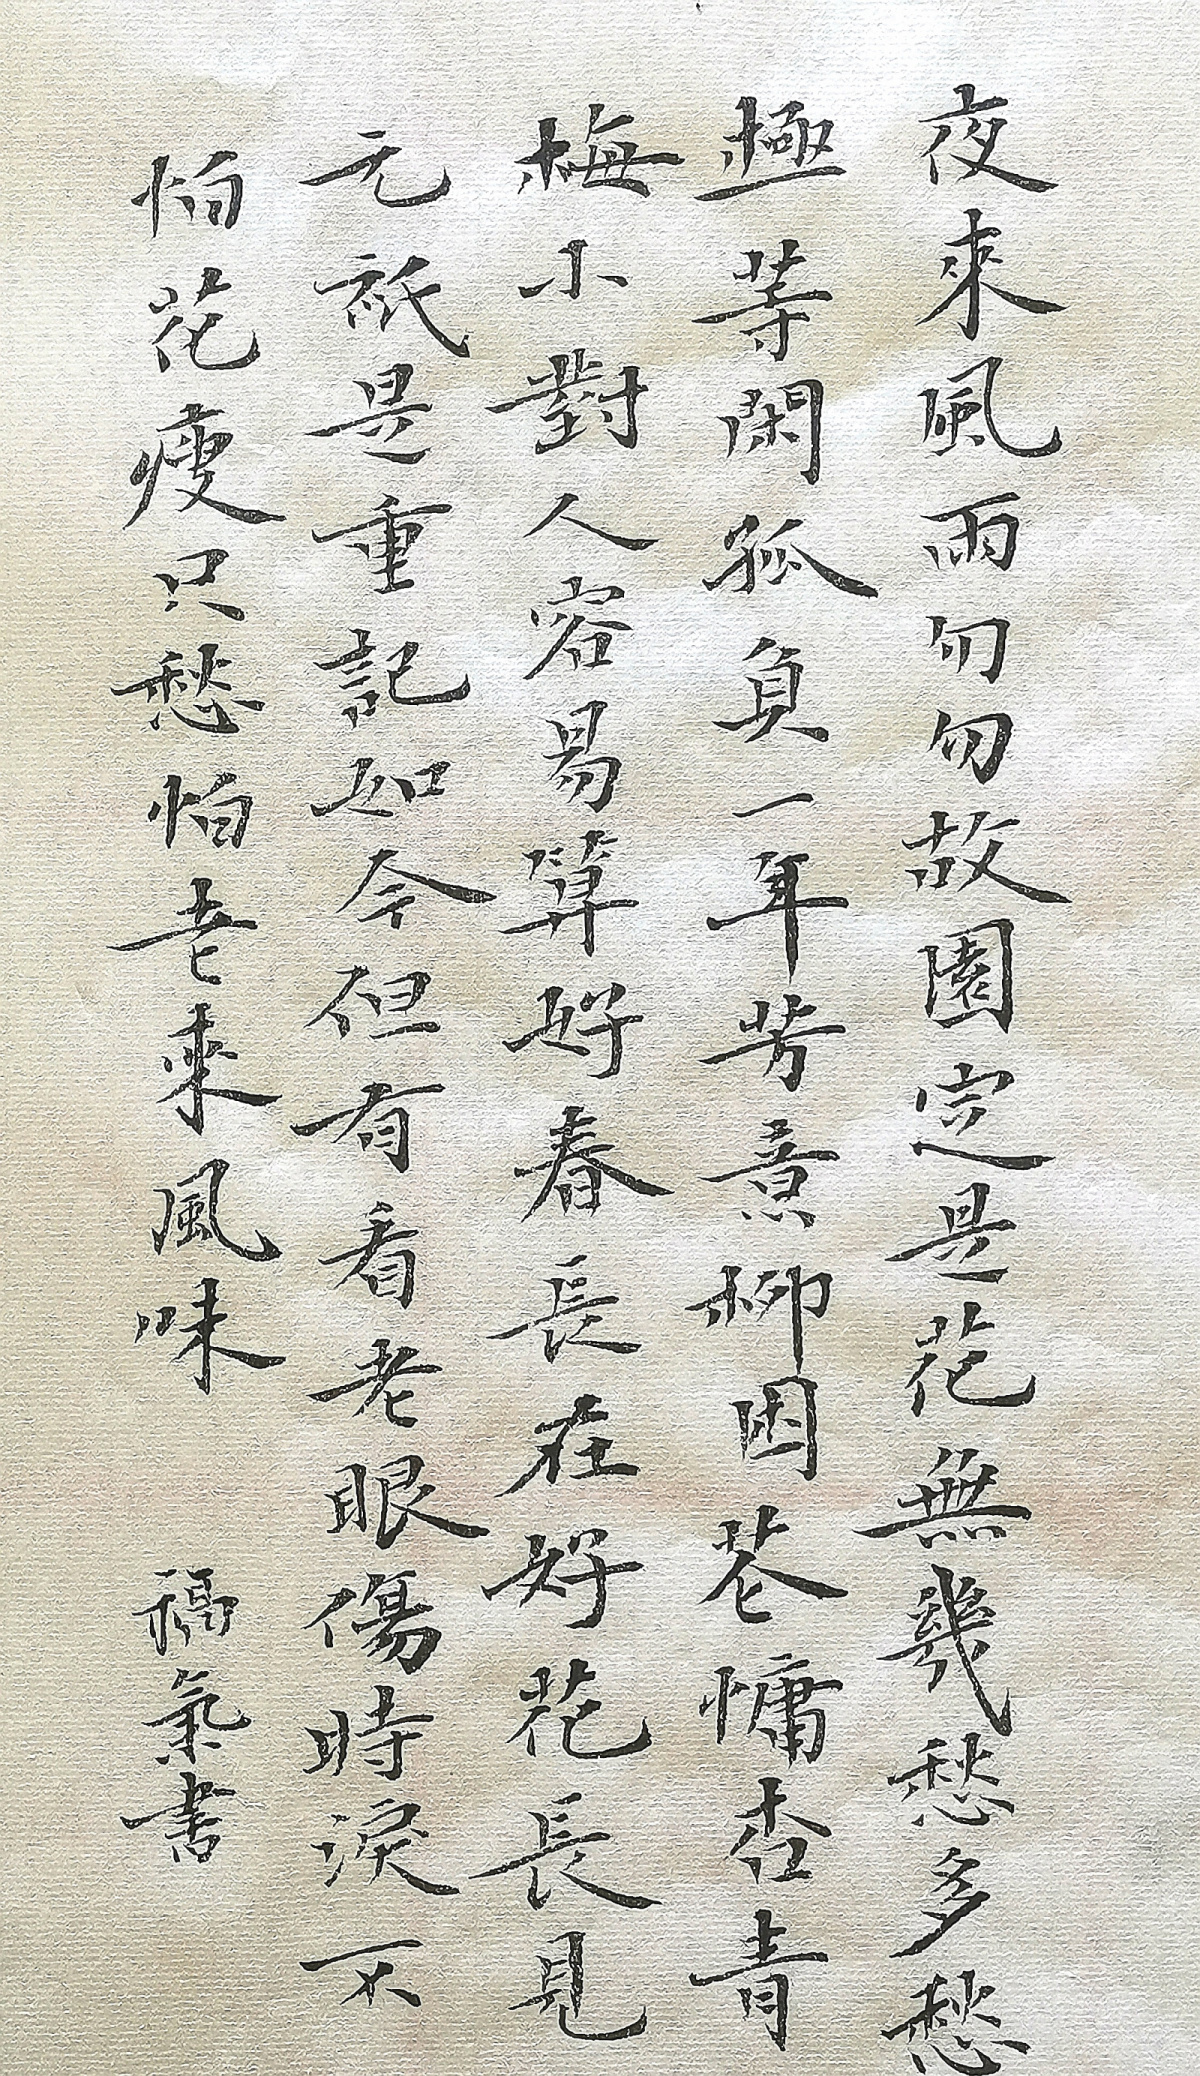 夜來風雨匆匆故園定是花無幾愁多愁
極等閑孤負一年芳意柳困花慵杏青
梅小對人容易算好春長在好花長見
元祇是重記如今但有看老眼傷時淚不
怕花瘦只愁怕老來風味 福氣書